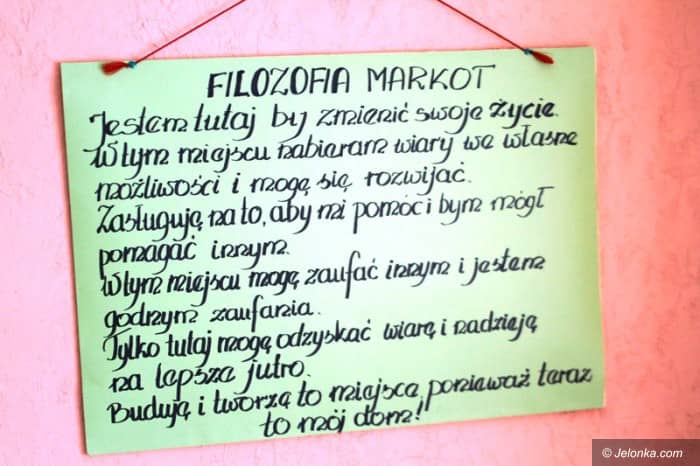 FILOZOFIA MARKOT
Jestem tutaj by zmienić swoje życie.
W tym miejscu nabieram wiary we własne
możliwości i mogę się rozwijać.
Zasługuję na to, aby mi pomóc i bym mógł
pomagać innym.
W tym miejscu mogę zaufać innym i jestem
godnym zaufania.
Tylko tutaj mogę odzyskać wiarę i nadzieję
na lepsze jutro.
Buduję i tworzę to miejsce, ponieważ teraz
to mój dom!
© Jelonka.com